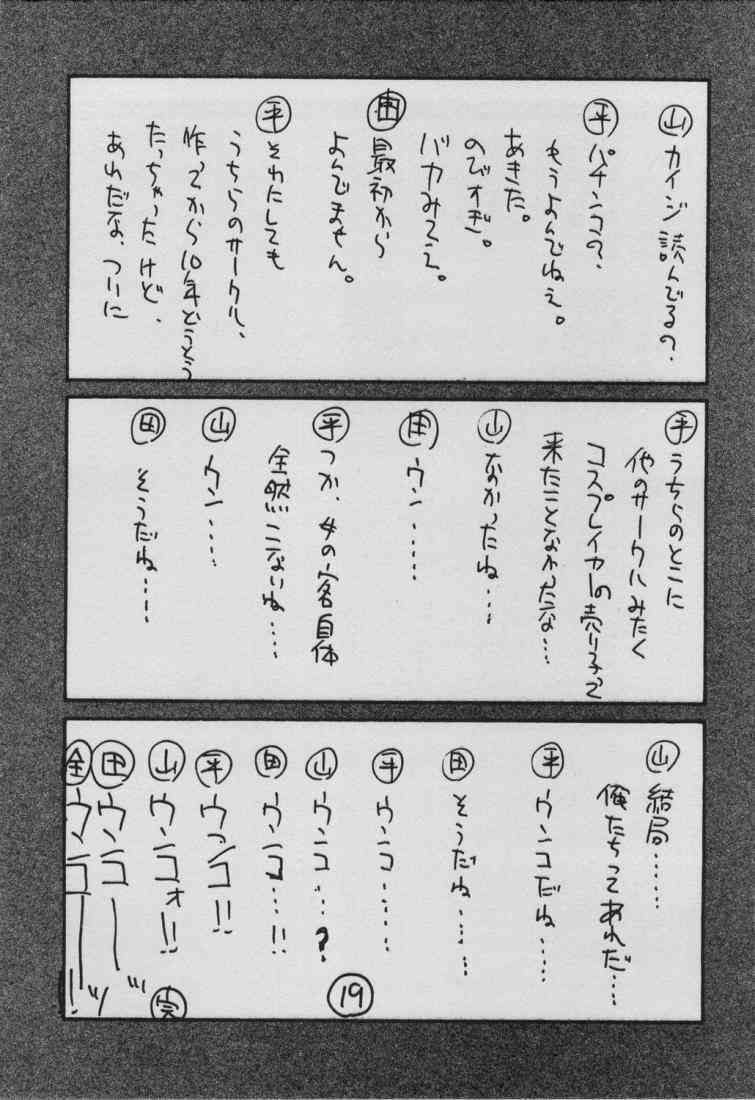 山 カイジ読んでるの?
平 パチンコの?
もうよんでねえ。
あきた。
のびすぎ。
バカみてえ。
田 最初から
よんでません。
平 それにしても
うちらのサークル、
作ってから10年どうとう
たっちゃったけど、
あれだな、ついに
平 うちらのとこに
他のサークルみたく
コスプレイヤーの売り子って
来たことなかったな…
山 なかったね…
田 ウン……
平 つか、女の客自体
全然こないね……
山 ウン……
田 そうだね……
山 結局……
俺たちってあれだ……
平 ウンコだね……
田 そうだね……
平 ウンコ……
山 ウンコ…?
田 ウンコ…!!
平 ウンコ!!
山 ウンコォ!!
田 ウンコーッ
全 ウンコーッ!
完
19